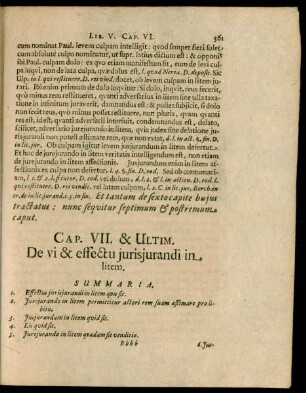 LIB. V. CAP. VI. 561
cum nominat Paul. levem culpam intelligit: quod semper fieri solet,
cum absolutè culpa nominatur, ut supr. latius dictum est: & opponit
ibi Paul. culpam dolo: ex quo etiam manifestum sit, eum de levi cul-
pa loqui, non de lata culpa, quæ dolus est, l. quod Nerva. D. deposit. Sic
Ulp. in l. qui restituere. D. rei vind. docet, ob culpam in litem non jurari.
Primum enim de dolo loquitur: Si dolo, inquit, reus fecerit,
quò minus cum restituere, quanti adversarius in litem sine ulla taxatio-
ne in infinitum juraverit, damnandus est: & postea subjicit, si dolo
non fecit reus, quò minus posset restituere, non pluris, quam quanti
res est, id est, quanti adversarii interfuit, condemnandus est, delato,
scilicet, adversario jurejurando in litem, quia judex sine delatione ju-
risjurandi non potest æstimare rem, quæ non extat,
in lit. jur. Ob culpam igitur levem jusjurandum in litem defertur. Et
hoc de jurejurando in litem veritatis intelligendum est, non etiam
de jurejurando in litem affectionis. Jusjurandum enim in litem af-
fectionis ex culpa non defertur, Sed ob contumaci-
am, vel dolum,
vel latam culpam,
Et tantum de sexto capite hujus
tractatus: nunc sequitur septimum & postremum
caput.
CAP. VII. & ULTIM.
De vi & effectu jurisjurandi in
litem.
SUMMARIA.
1. Effectus jurisjurandi in litem quis sit.
2. Jurejurando in litem permittitur actori rem suam æstimare pro li-
bito.
3. Jusjurandum in litem quid sit.
4. Lis quid sit.
5. Jurejurando in litem quædam fit venditio.
Bbbb 6. Jus-